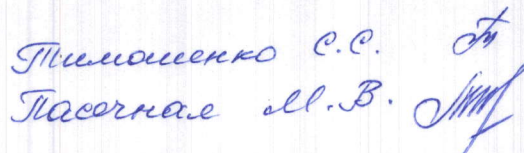 Тимошенко С.С.
Пасечная М.В.